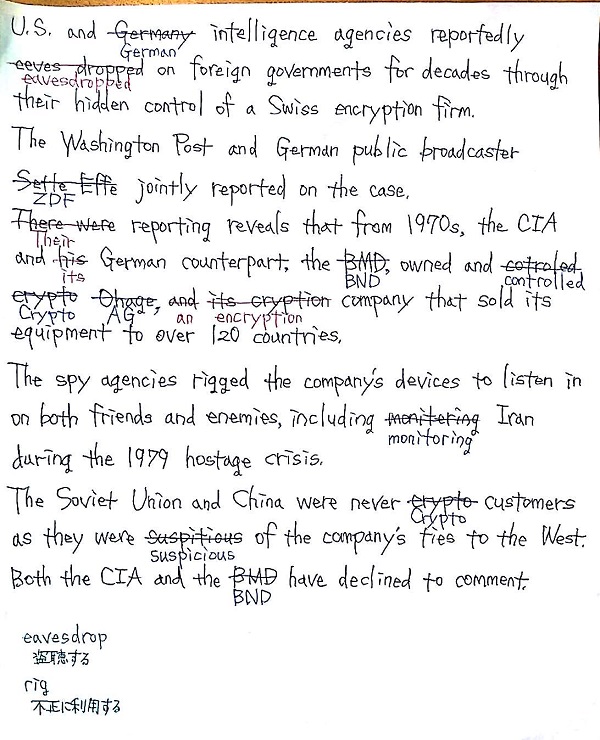 U.S. and Germany intelligence agencies reportedly
German
eeves dropped on foreign governments for decades through
eavesdropped
their hidden control of a Swiss encryption firm.
The Washington Post and German public broadcaster
Sette Effe jointly reported on the case.
ZDF
There were reporting reveals that from 1970s, the CIA
Their
and his German counterpart, the BMD, owned and cotroled
its BND controlled
crypto Ohage, and its cryption company that sold its
Crypto AG an encryption
equipment to over 120 countries.
The spy agencies rigged the company's devices to listen in
on both friends and enemies, including monitering Iran
monitoring
during the 1979 hostage crisis.
The Soviet Union and China were never crypto customers
Crypto
as they were suspitious of the company's ties to the West.
suspicious
Both the CIA and the BMD have declined to comment.
BND
eavesdrop
盗聴する
rig
不正に利用する